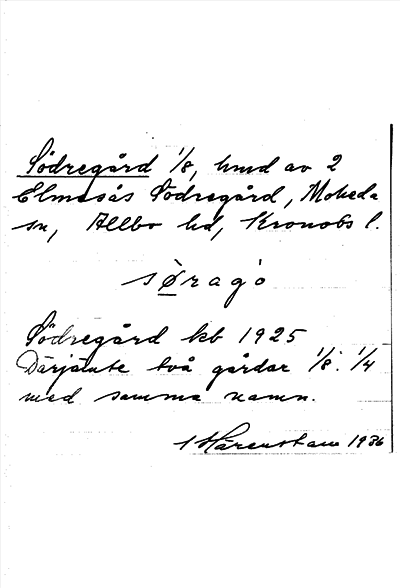 Södregård 1/8, hmd av 2
Elmesås Södregård, Moheda
sn, Allbo hd, Kronobs l.
sø̀ragò
Södregård kb 1925
Därjämte två gårdar 1/8. 1/4
med samma namn.
Härenstam 1936